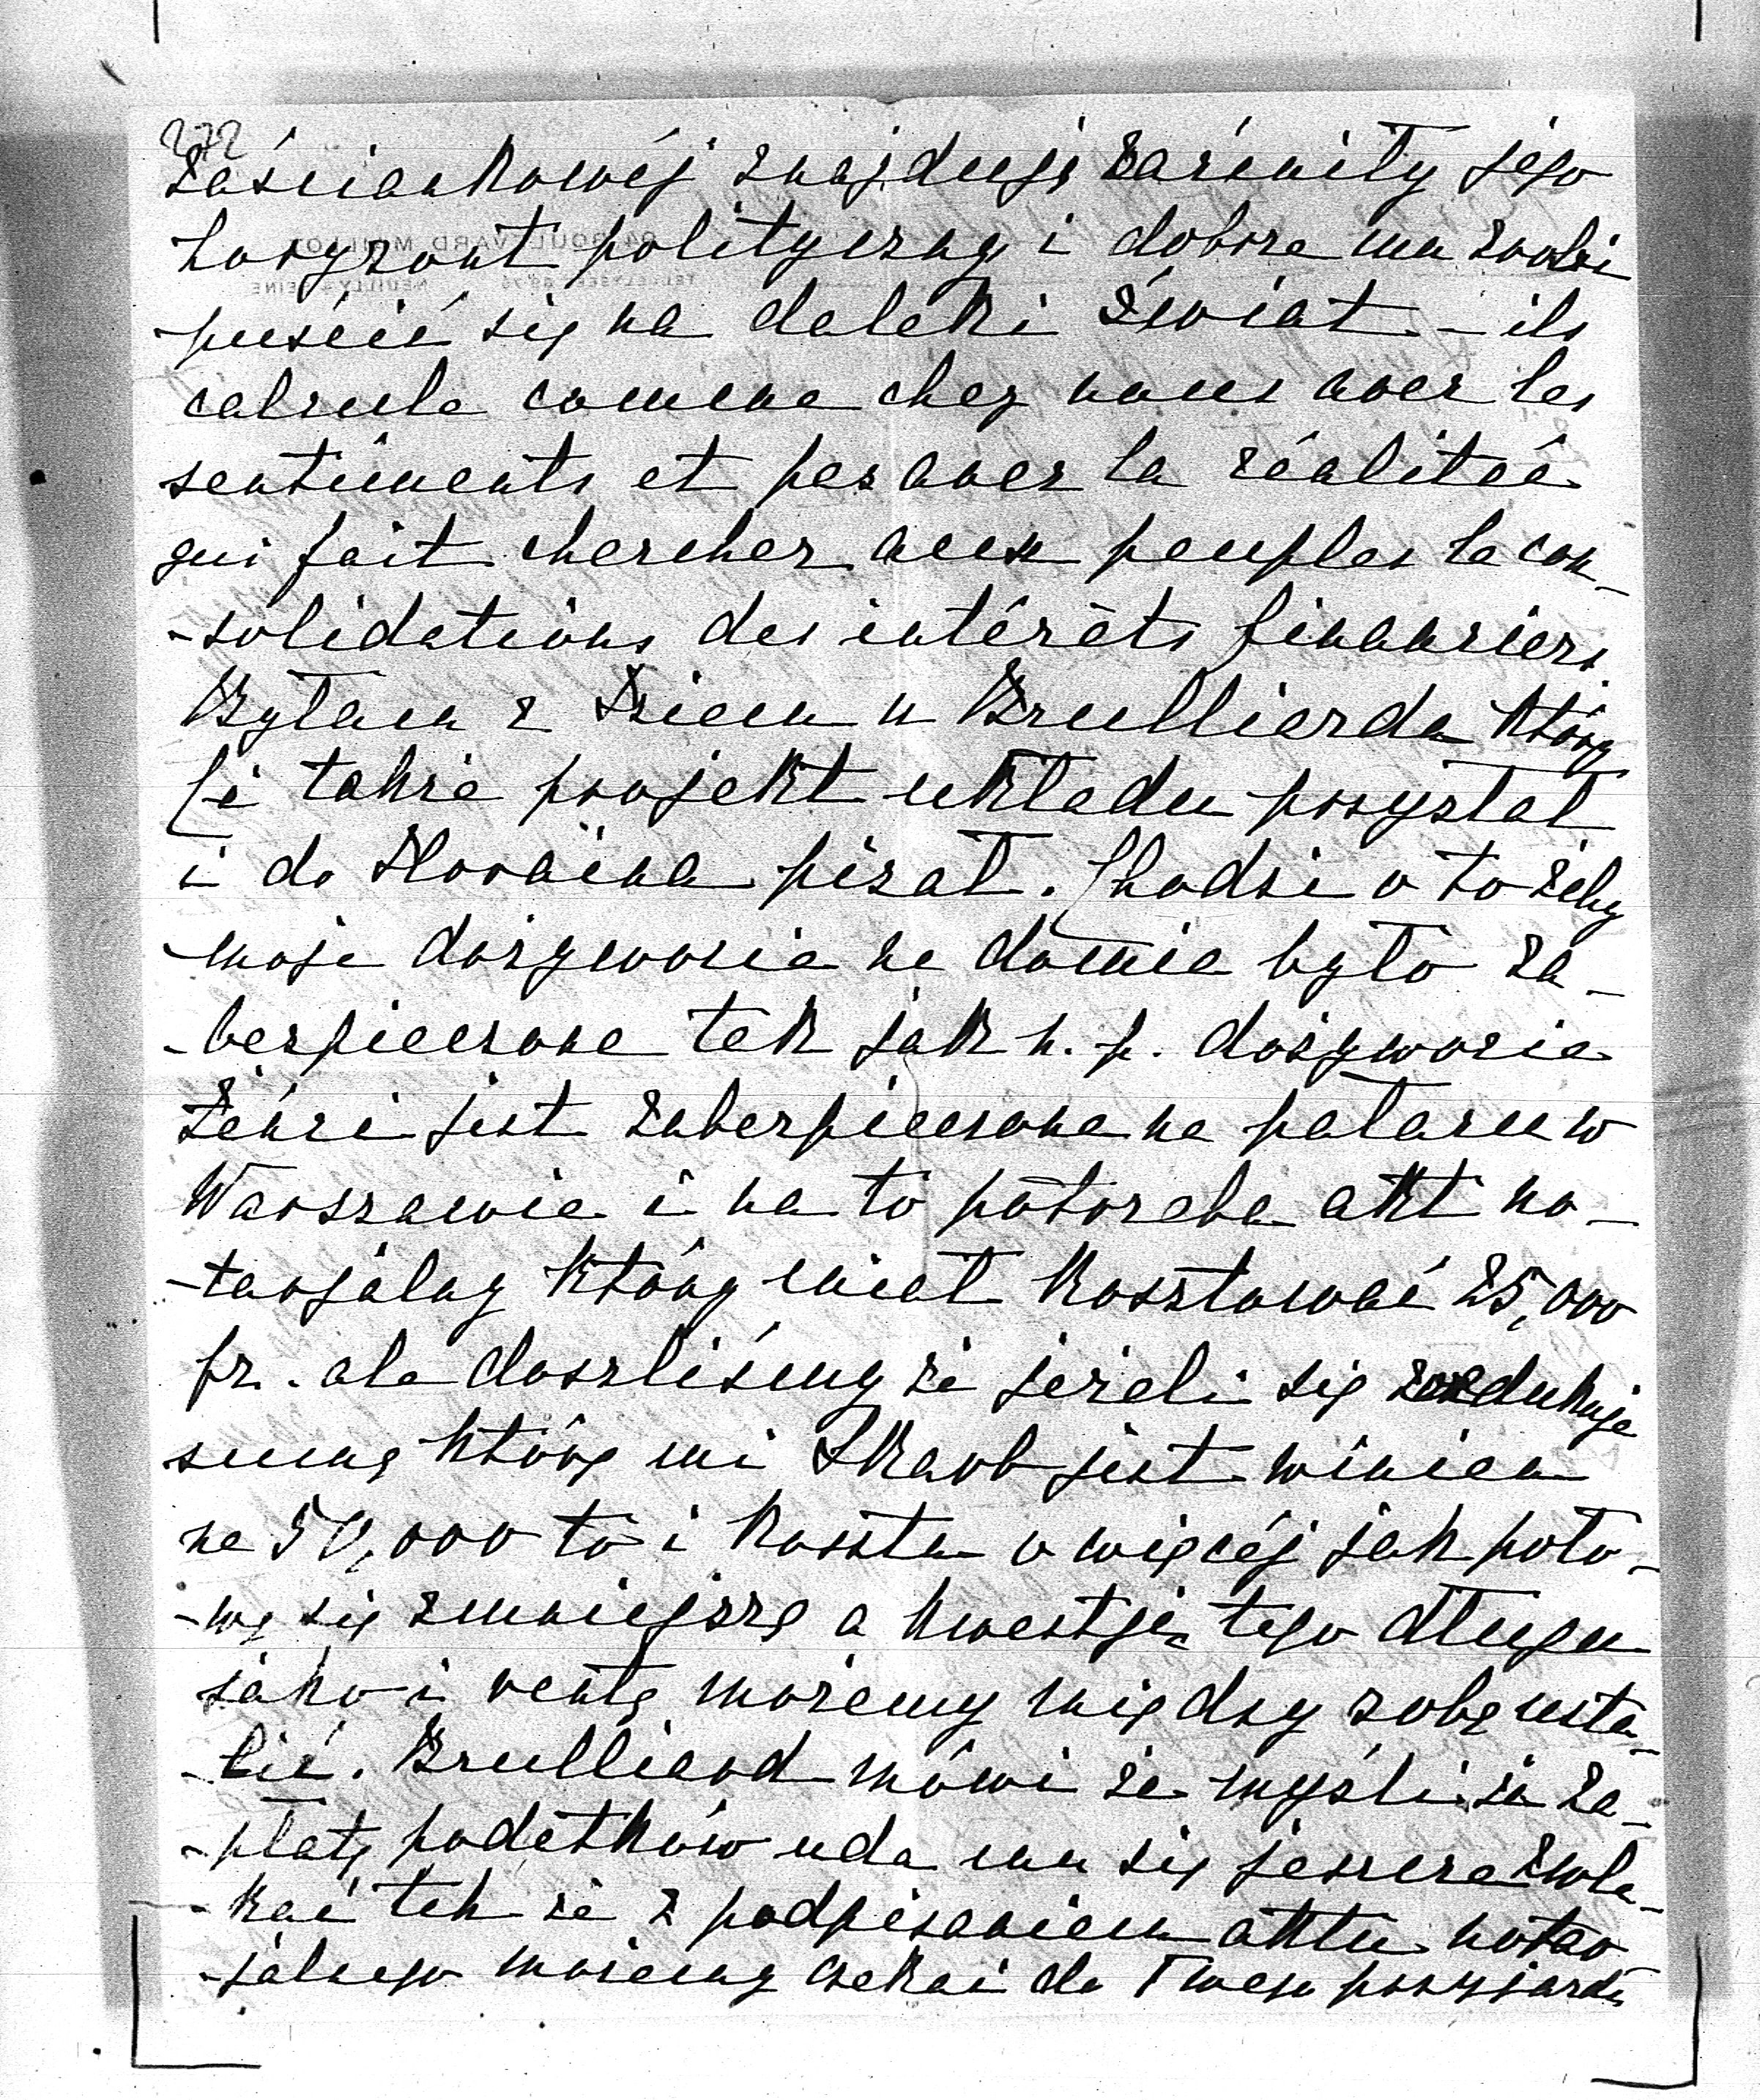 272
zaściankowéj znajduję zacieśniły jego
horyzont polityczny i dobrze mu zrobi
puścić się na daleki świat – ils
calcule comme chez nous avec les
sentiments et pas avec la réalitée
qui fait chercher aux peuples la con-
-solidations des intérêts financiers.
Byłam z Piem u Brulliarda który
Ci także projekt układu posyłał
i do Moraina pisał. Chodzi o to żeby
moje dożywocie na domie było za-
-bezpieczone tak jak n. p. dożywocie
Zeńci jest zabezpieczone na pałacu w
Warszawie i na to potrzeba akt no-
-tarjalny który miał kosztować 25,000
fr. ale doszliśmy że jeżeli się zredukuje
sumę którę mi Skarb jest winien
na 50,000 to i koszta o więcéj jak poło-
-wę się zmniejszę a kwestję tego długu
jako i rentę możemy między sobę usta-
-lić. Brulliard mówi że myśli że za-
-płatę podatków uda mu się jeszcze zwle-
-kać tak że z podpisaniem aktu notar
-jalnego możemy czekać do Twego przyjazdu